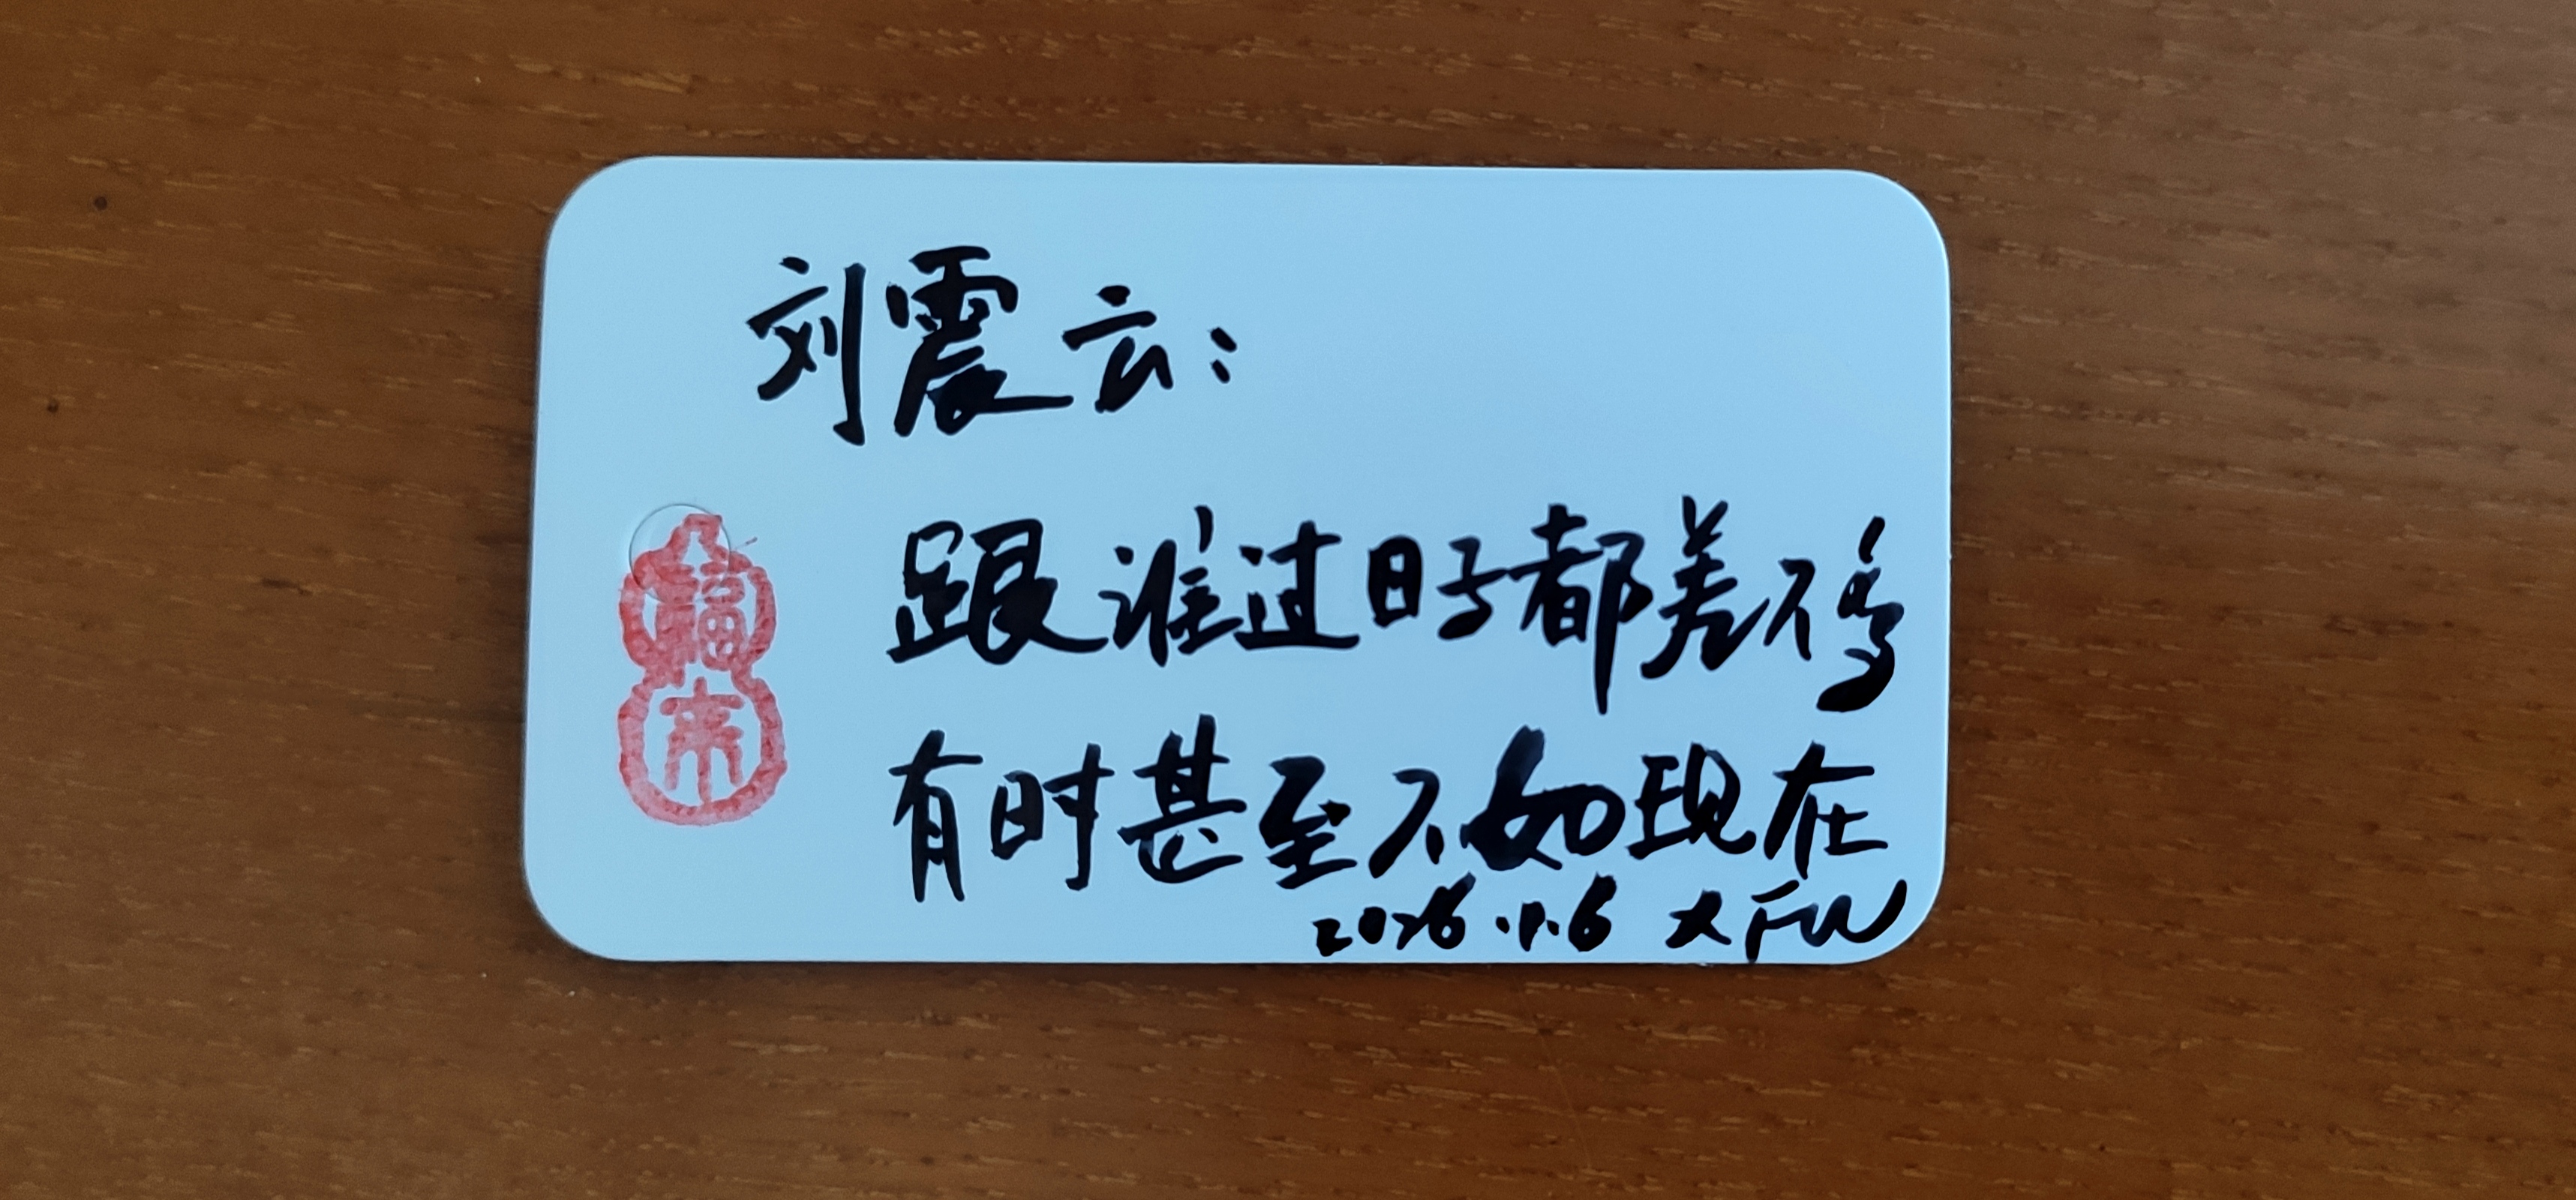 刘震云：
跟谁过日子都差不多
有时甚至不如现在
2026.1.6
福